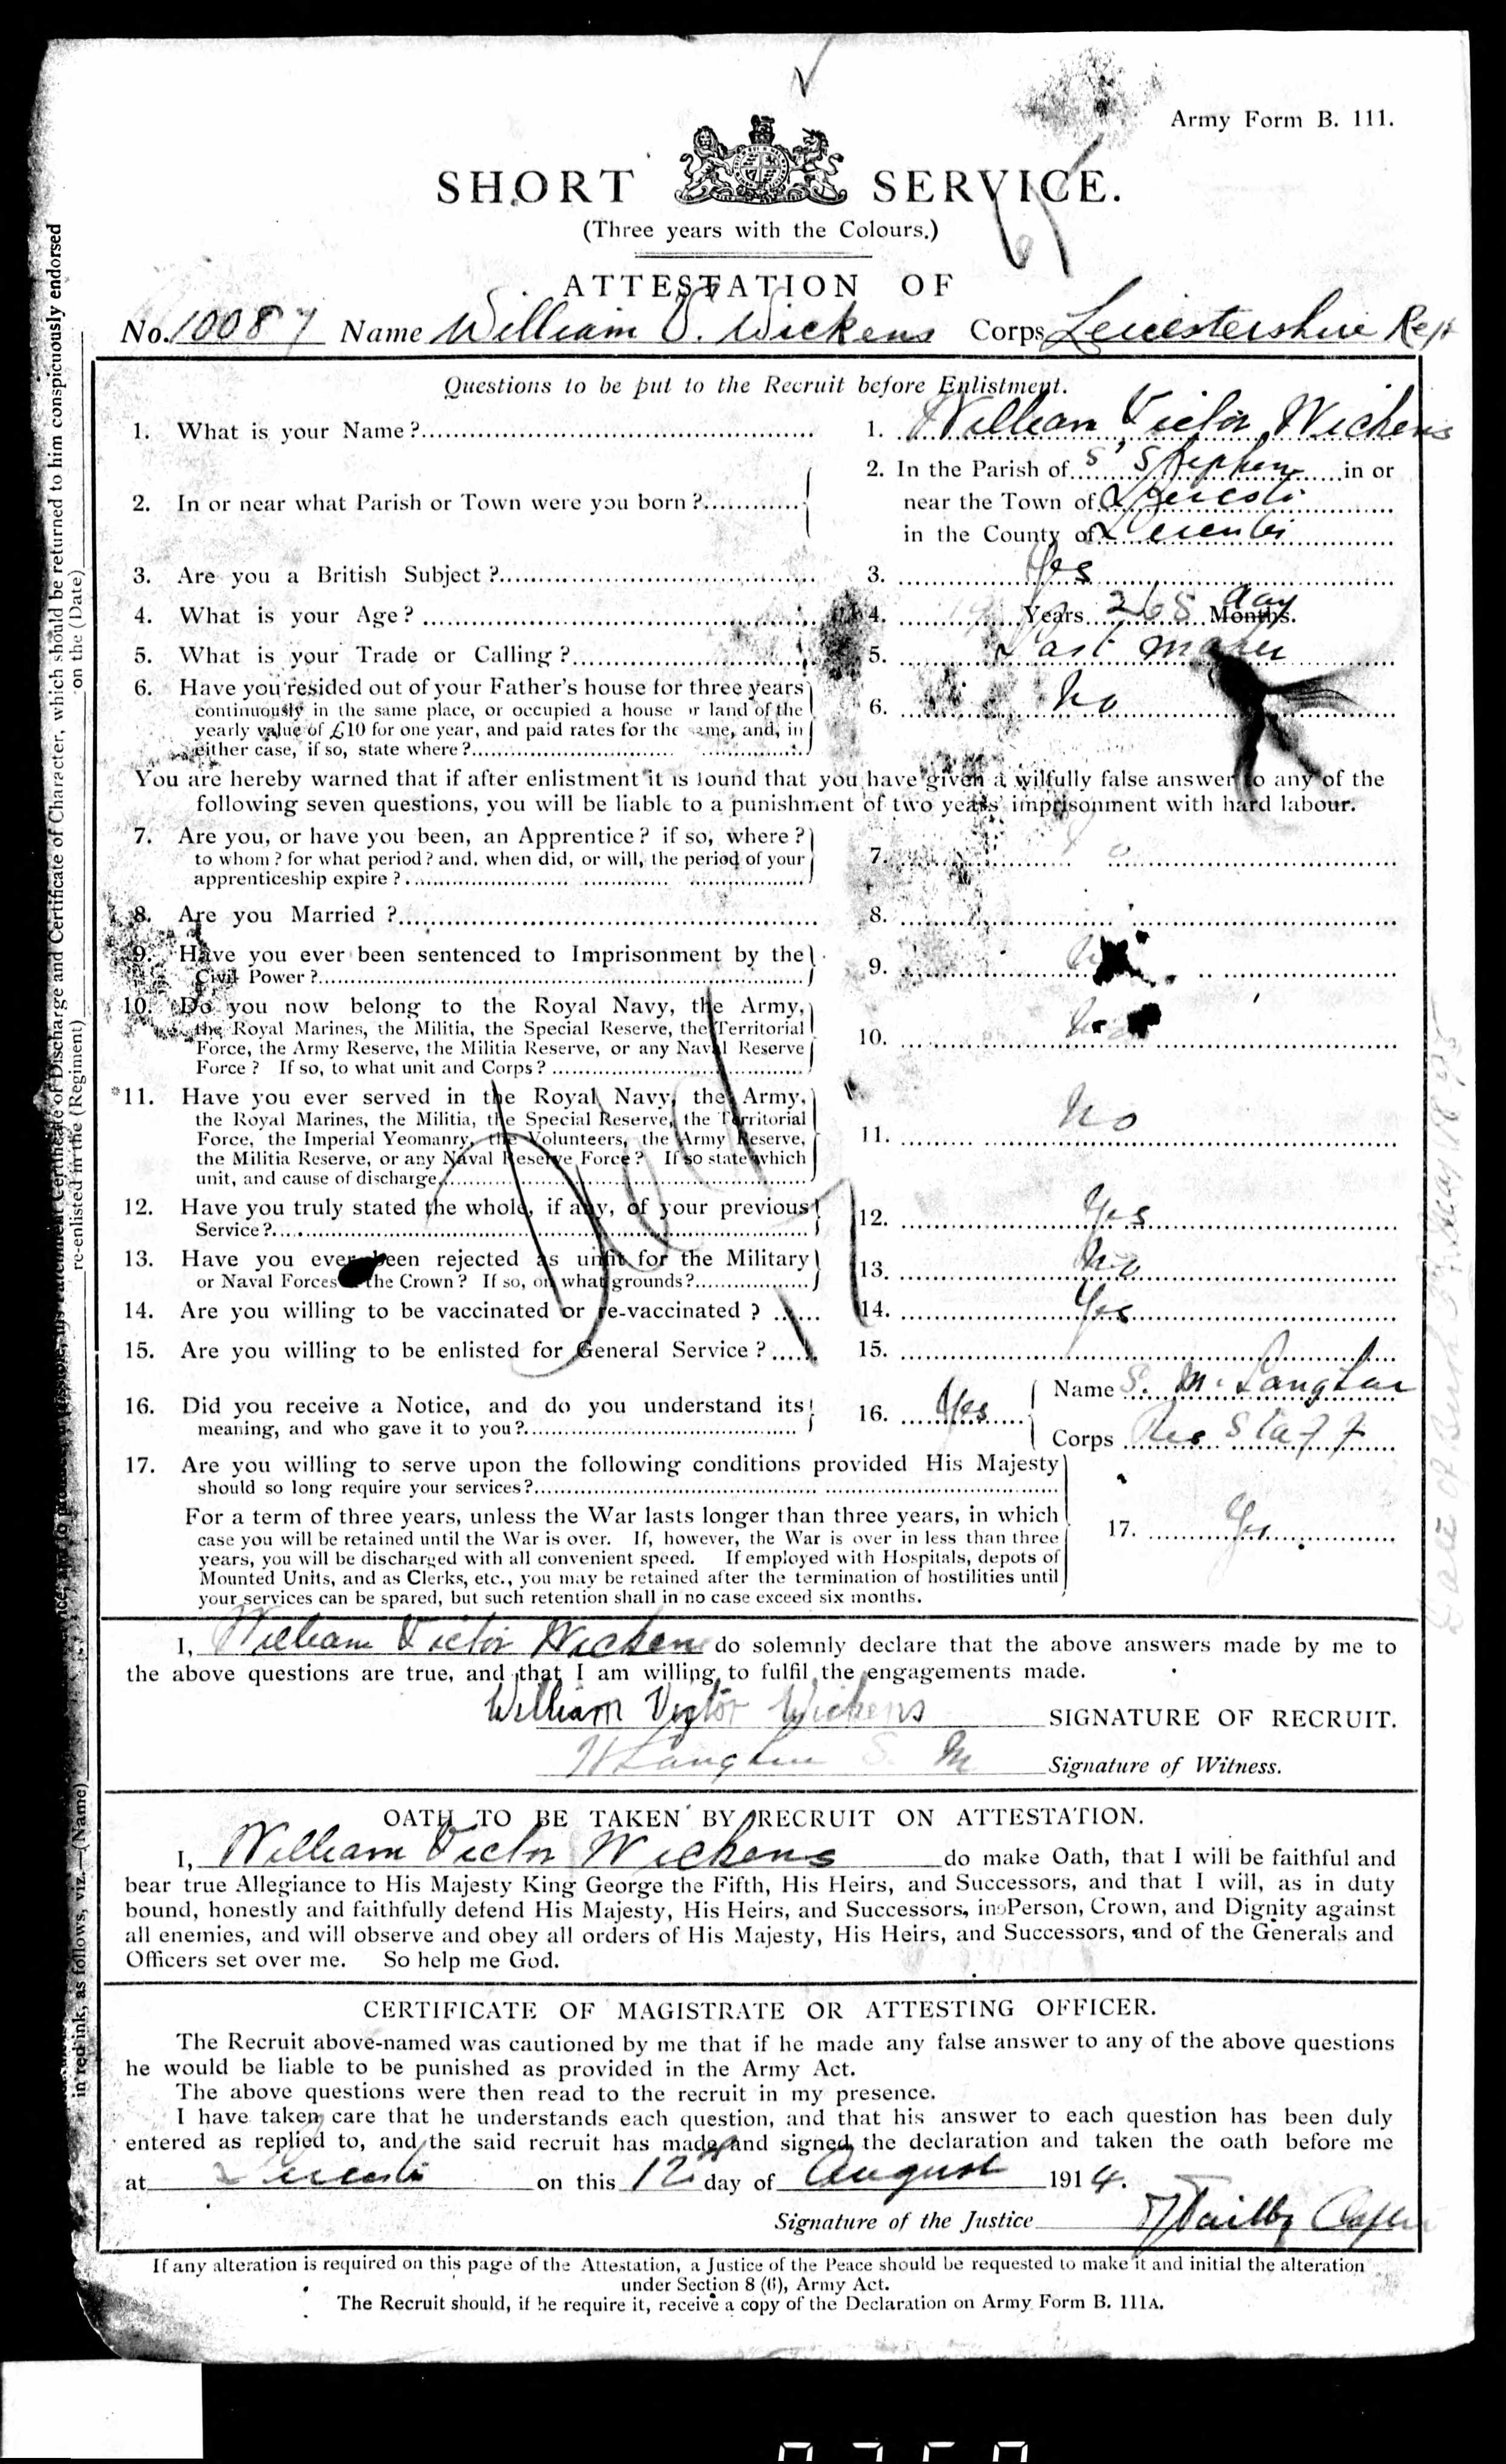 Army Form B. 111.
SHORT SERVICE.
(Three years with the Colours.)
ATTESTATION OF
No. 10087 Name William V. Wickens Corps Leicestershire Regt
Questions to be put to the Recruit before Enlistment.
1. What is your Name? 1. William Victor Wickens
2. In or near what Parish or Town were you born? 2. In the Parish of St Stephens in or
near the Town of Leicester
in the County of Leicester
3. Are you a British Subject? 3. Yes
4. What is your Age? 4. 19 Years 265 day Months.
5. What is your Trade or Calling? 5. Last maker
6. Have you resided out of your Father's house for three years 6. No
continuously in the same place, or occupied a house or land of the
yearly value of £10 for one year, and paid rates for the same, and, in
either case, if so, state where?
You are hereby warned that if after enlistment it is found that you have given a wilfully false answer to any of the
following seven questions, you will be liable to a punishment of two years' imprisonment with hard labour.
7. Are you, or have you been, an Apprentice? if so, where? 7.
to whom? for what period? and, when did, or will, the period of your
apprenticeship expire?
8. Are you Married? 8.
9. Have you ever been sentenced to Imprisonment by the 9.
Civil Power?
10. Do you now belong to the Royal Navy, the Army, 10.
the Royal Marines, the Militia, the Special Reserve, the Territorial
Force, the Army Reserve, the Militia Reserve, or any Naval Reserve
Force? If so, to what unit and Corps?
*11. Have you ever served in the Royal Navy, the Army, 11. No
the Royal Marines, the Militia, the Special Reserve, the Territorial
Force, the Imperial Yeomanry, the Volunteers, the Army Reserve,
the Militia Reserve, or any Naval Reserve Force? If so state which
unit, and cause of discharge
12. Have you truly stated the whole, if any, of your previous 12. Yes
Service?
13. Have you ever been rejected as unfit for the Military 13. No
or Naval Forces of the Crown? If so, on what grounds?
14. Are you willing to be vaccinated or re-vaccinated? 14. Yes
15. Are you willing to be enlisted for General Service? 15.
16. Did you receive a Notice, and do you understand its 16. Yes Name S. M. Langham
meaning, and who gave it to you? Corps Rec Staff
17. Are you willing to serve upon the following conditions provided His Majesty
should so long require your services?
For a term of three years, unless the War lasts longer than three years, in which 17. Yes
case you will be retained until the War is over. If, however, the War is over in less than three
years, you will be discharged with all convenient speed. If employed with Hospitals, depots of
Mounted Units, and as Clerks, etc., you may be retained after the termination of hostilities until
your services can be spared, but such retention shall in no case exceed six months.
I, William Victor Wickens do solemnly declare that the above answers made by me to
the above questions are true, and that I am willing to fulfil the engagements made.
William Victor Wickens SIGNATURE OF RECRUIT.
Langham S. M Signature of Witness.
OATH TO BE TAKEN BY RECRUIT ON ATTESTATION.
I, William Victor Wickens do make Oath, that I will be faithful and
bear true Allegiance to His Majesty King George the Fifth, His Heirs, and Successors, and that I will, as in duty
bound, honestly and faithfully defend His Majesty, His Heirs, and Successors, in Person, Crown, and Dignity against
all enemies, and will observe and obey all orders of His Majesty, His Heirs, and Successors, and of the Generals and
Officers set over me. So help me God.
CERTIFICATE OF MAGISTRATE OR ATTESTING OFFICER.
The Recruit above-named was cautioned by me that if he made any false answer to any of the above questions
he would be liable to be punished as provided in the Army Act.
The above questions were then read to the recruit in my presence.
I have taken care that he understands each question, and that his answer to each question has been duly
entered as replied to, and the said recruit has made and signed the declaration and taken the oath before me
at Leicester on this 12th day of August 1914.
Signature of the Justice
If any alteration is required on this page of the Attestation, a Justice of the Peace should be requested to make it and initial the alteration
under Section 8 (6), Army Act.
The Recruit should, if he require it, receive a copy of the Declaration on Army Form B. 111A.
Certificate of Discharge and Certificate of Character, which should be returned to him conspicuously endorsed
in red ink, as follows, viz.—(Name) re-enlisted in the (Regiment) on the (Date)
Date of Birth